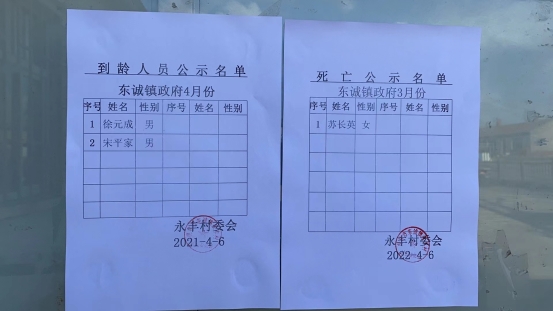 到龄人员公示名单
东诚镇政府4月份
序号 姓名 性别 序号 姓名 性别
1 徐元成 男
2 宋平家 男
永丰村委会
2021-4-6
死亡公示名单
东诚镇政府3月份
序号 姓名 性别 序号 姓名 性别
1 苏长英 女
永丰村委会
2022-4-6